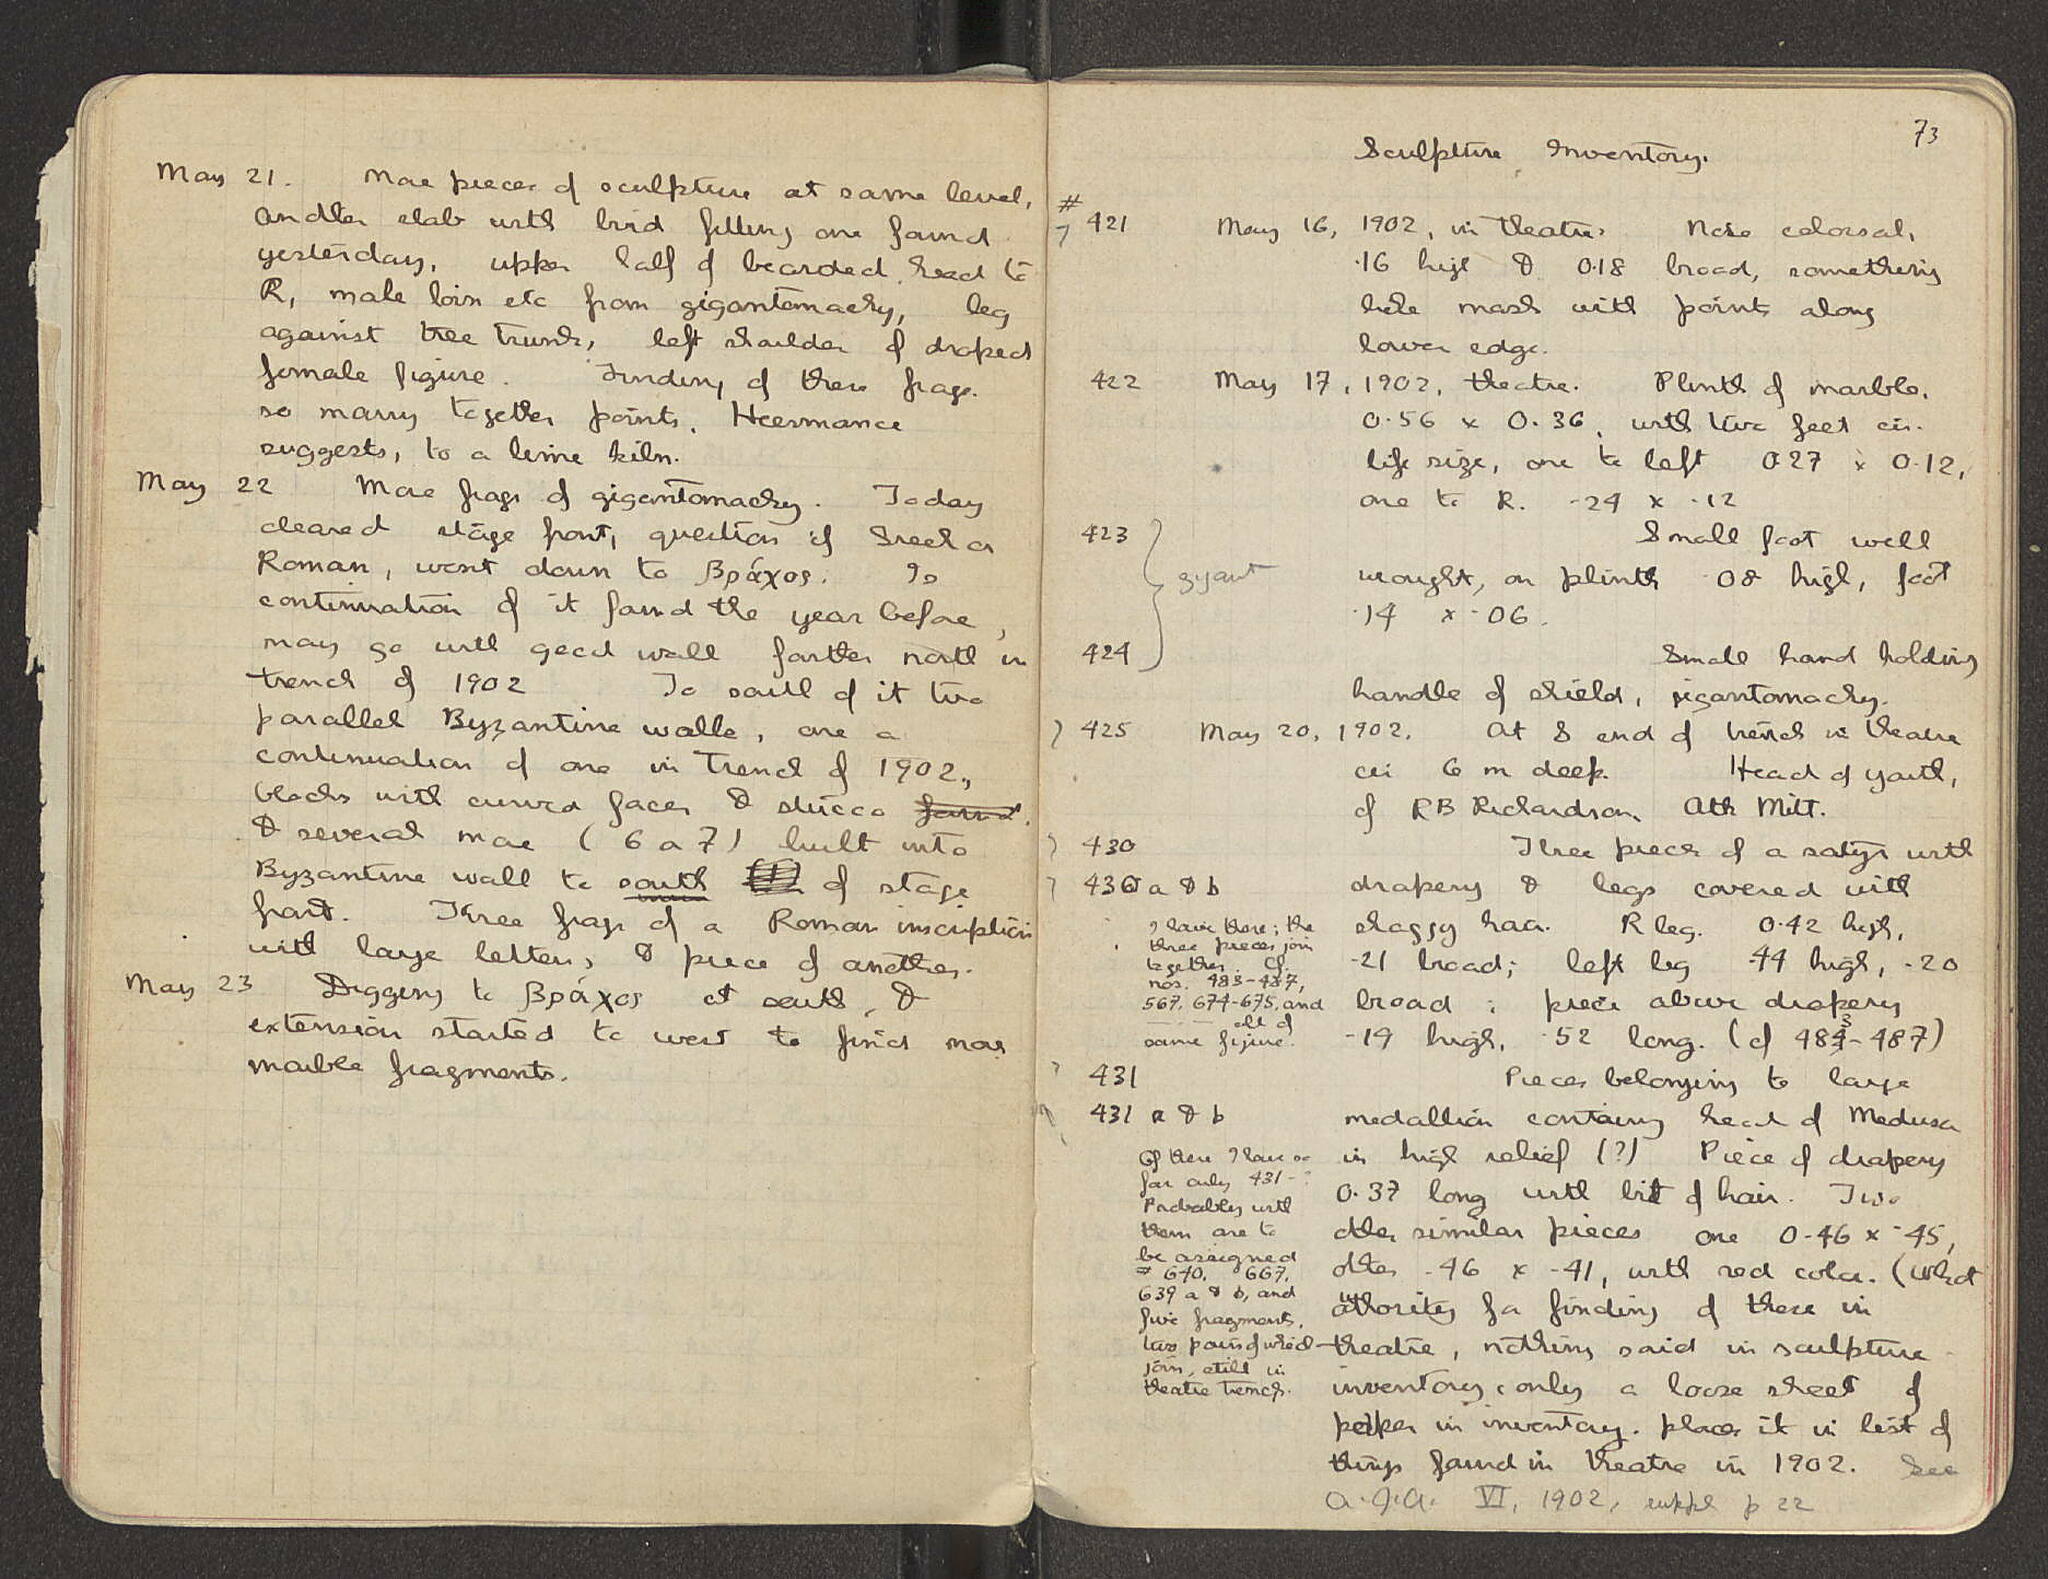 May 21. More pieces of sculpture at same level,
another slab with bird fitting one found
yesterday, upper half of bearded head to
R, male loin etc from gigantomachy, leg
against tree trunk, left shoulder of draped
female figure. Finding of these frags.
so many together points, Heermance
suggests, to a lime kiln.
May 22 More frags of gigantomachy. Today
cleared stage front, question if Greek or
Roman, went down to βράχος. Is
continuation of it found the year before,
may go with good wall farther north in
trench of 1902 To south of it two
parallel Byzantine walls, one a
continuation of one in trench of 1902,,
blocks with curved faces & stucco found,
& several more (6 or 7) built into
Byzantine wall to south of stage
front. Three frags of a Roman inscription
with large letters, & piece of another.
May 23 Digging to βράχος at south, &
extension started to west to find more
marble fragments.
73
Sculpture Inventory.
#
? 421 May 16, 1902, in theatre. Nose colossal,
.16 high & 0.18 broad, something
like mask with points along
lower edge.
422 May 17, 1902, theatre. Plinth of marble,
0.56 x 0.36, with two feet cir.
life size, one to left 0.27 x 0.12,
one to R. .24 x .12
423 Small foot well
gyant wrought, on plinth .08 high, foot
.14 x .06.
424 Small hand holding
handle of shield, gigantomachy.
? 425 May 20, 1902. At S end of trench in theatre
cir 6 m deep. Head of youth,
cf RB Richardson, Ath Mitt.
? 430 Three pieces of a satyr with
? 430 a & b drapery & legs covered with
shaggy hair. R leg. 0.42 high,
.21 broad; left leg .44 high, .20
broad; piece above drapery
.19 high, .52 long. (cf 483-487)
I have there; the
three pieces join
together. Cf.
nos. 483-487,
567, 674-675, and
all of
same figure.
? 431 Pieces belonging to large
431 a & b medallion containing head of Medusa
in high relief (?) Piece of drapery
0.37 long with bit of hair. Two
other similar pieces one 0.46 x .45,
other .46 x .41, with red color. (What
authority for finding of these in
theatre, nothing said in sculpture
inventory, only a loose sheet of
paper in inventory. places it in list of
things found in theatre in 1902. See
A.J.A. VI, 1902, suppl p 22
Of these I have so
far only 431-?
Probably with
them are to
be assigned
# 640, 667,
639 a & b, and
five fragments,
two pairs of which
join, still in
theatre trench.